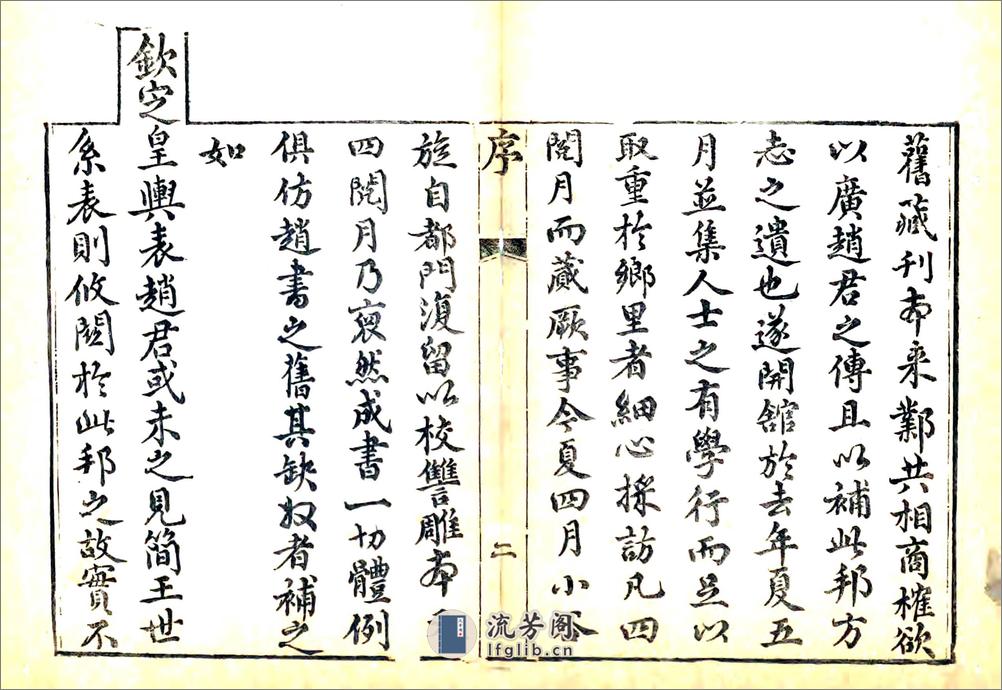 舊藏刊本來鄴共相商榷欲
以廣趙君之傳且以補此邦方
志之遺也遂開舘於去年夏五
月並集人士之有學行而足以
取重於鄉里者細心採訪凡四
閱月而蕆厥事今夏四月小谷
序
二
旋自都門復留以校讐雕本
四閱月乃裒然成書一切體例
俱仿趙書之舊其缺者補之
如
欽定皇輿表趙君或未之見簡王世
系表則攸關於此邦之故實不
流芳阁
lfglib.cn